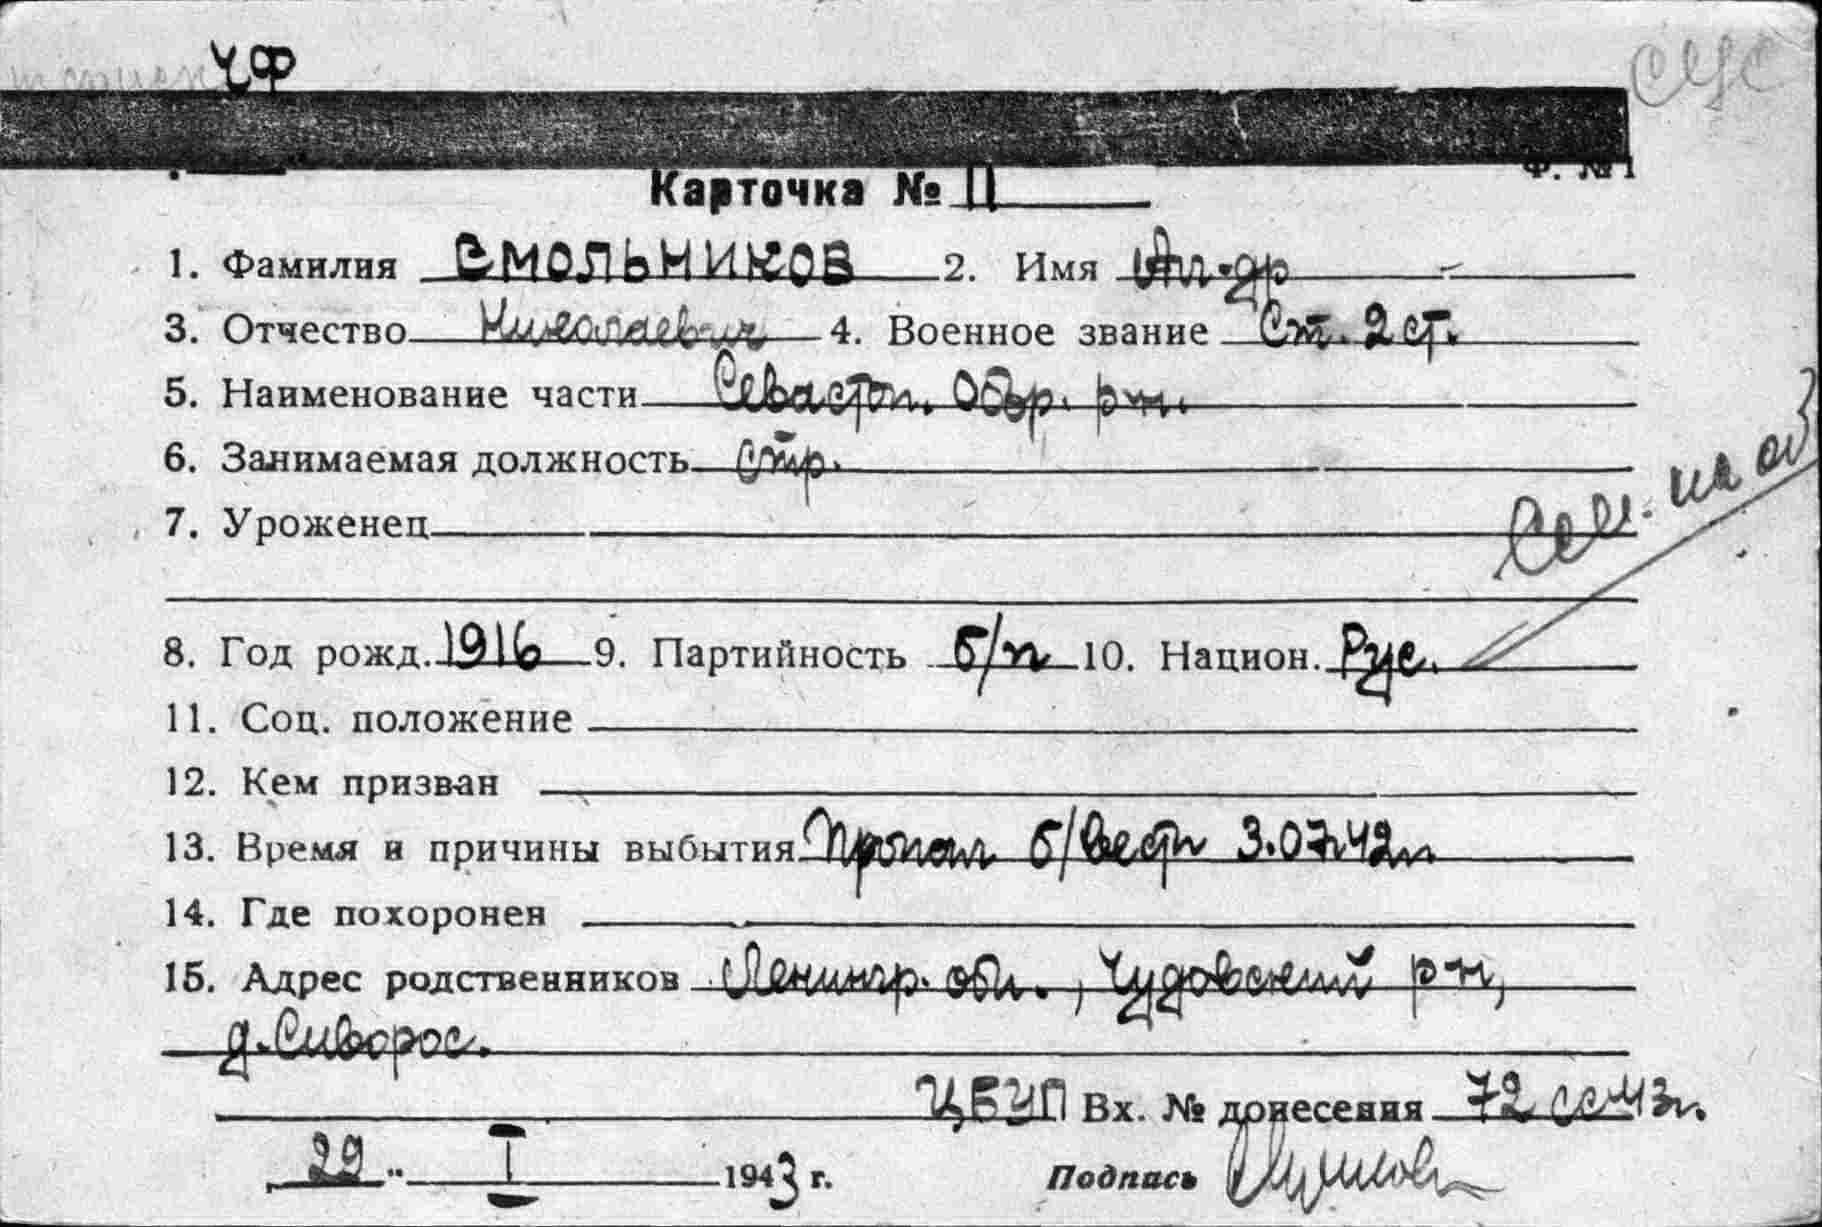 ЧФ
СЧС
Ф. №1
Карточка № П
1. Фамилия Смольников 2. Имя Ал-др
3. Отчество Николаевич 4. Военное звание Ст. 2 ст.
5. Наименование части Севастоп. Обор. р-н.
6. Занимаемая должность стр.
7. Уроженец
См. на об
8. Год рожд. 1916 9. Партийность б/п 10. Национ. Рус.
11. Соц. положение
12. Кем призван
13. Время и причины выбытия Пропал б/вести 3.07.42г.
14. Где похоронен
15. Адрес родственников Ленингр. обл., Чудовский р-н,
д. Сиворос.
ЦБУП Вх. № донесения 72 сс 43г.
29 " I 1943 г. Подпись